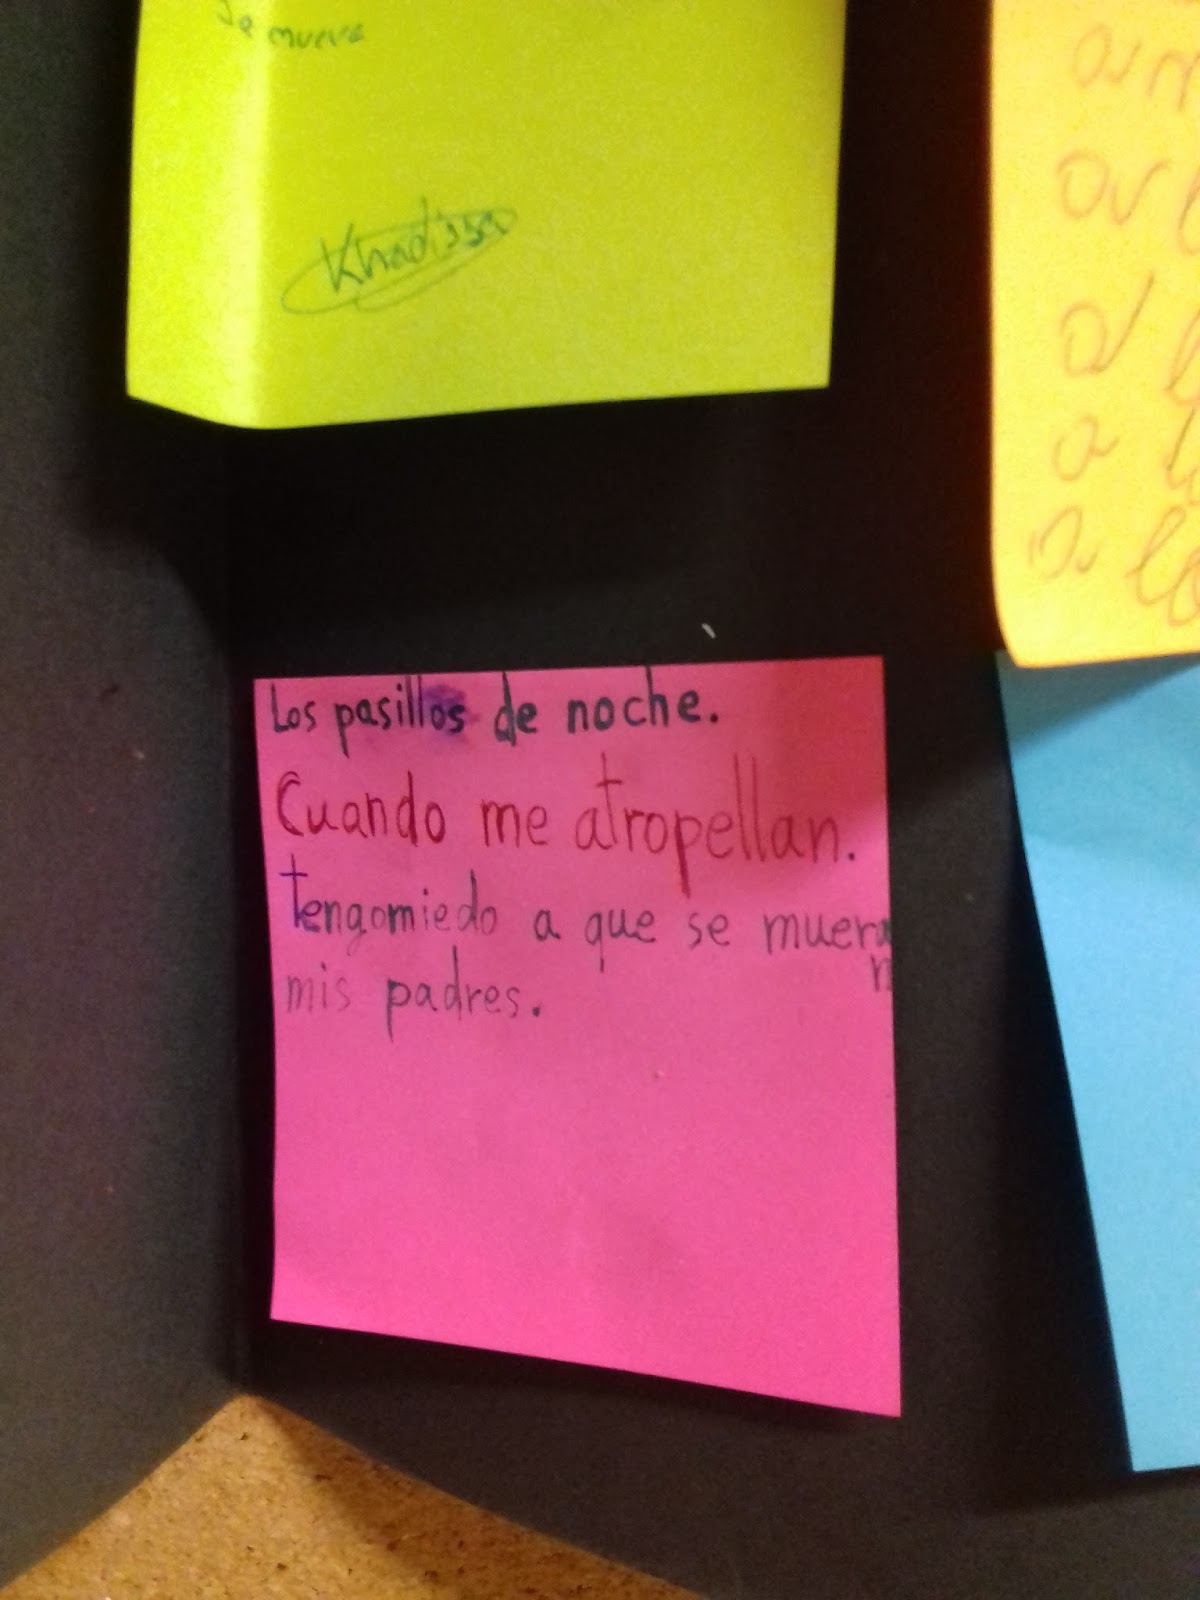 se muera
Khadissa
Los pasillos de noche.
Cuando me atropellan.
tengomiedo a que se mueran
mis padres.
a
a lo